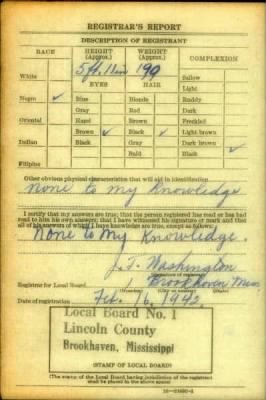 REGISTRAR'S REPORT
DESCRIPTION OF REGISTRANT
RACE HEIGHT (Approx.) WEIGHT (Approx.) COMPLEXION
White 5 ft. 11 in 199 Sallow
EYES HAIR Light
Negro ✓ Blue Blonde Ruddy
Gray Red Dark
Oriental Hazel Brown Freckled
Brown ✓ Black ✓ Light brown
Indian Black Gray Dark brown
Bald Black ✓
Filipino
Other obvious physical characteristics that will aid in identification
None to my Knowledge
I certify that my answers are true; that the person registered has read or has had
read to him his own answers; that I have witnessed his signature or mark and that
all of his answers of which I have knowledge are true, except as follows:
None to My Knowledge.
J. T. Washington
(Signature of registrar)
Registrar for Local Board Brookhaven Miss
(Number) (City or county) (State)
Date of registration Feb. 16, 1942
Local Board No. 1
Lincoln County
Brookhaven, Mississippi
(STAMP OF LOCAL BOARD)
(The stamp of the Local Board having jurisdiction of the registrant
shall be placed in the above space)